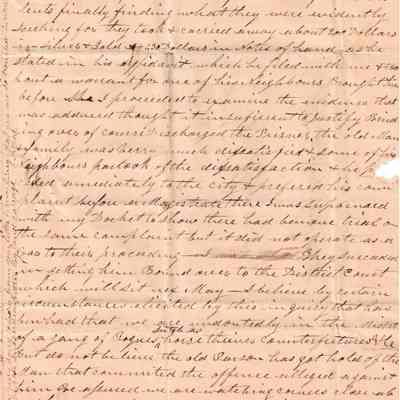 finally finding what they were evidently
seeking for they took & carried away about 200 Dollars
in silver & Gold & 30 Dollars in Notes of hand, as he
stated in his affidavit which he filed with me &
out a warrant for one of his Neighbours Brought him
before me I proceeded to examine the evidence that
was adduced thought it insufficient to justify Bind
ing over of course Discharged the Prisner, the old Man
& family was verry much disatisfied & some of his
Neighbours partook of the disatisfaction &
immediately to the city & prefered his com
plaint before a Magistrate there I was Supoenaed
with my Docket to show there had been one trial on
the same complaint but it did not operate as a
to their proceeding they succeeded
in getting him Bound over to the District Court
which will sit in May I believe by certain
circumstances elicited by this inquiry that has
been had that we are undoubtedly in the midst
such as
of a gang of Rogues horse theives Counterfeiters &c
But do not believe the old Person has got hold of the
man that committed the offence alleged against
him we are watching